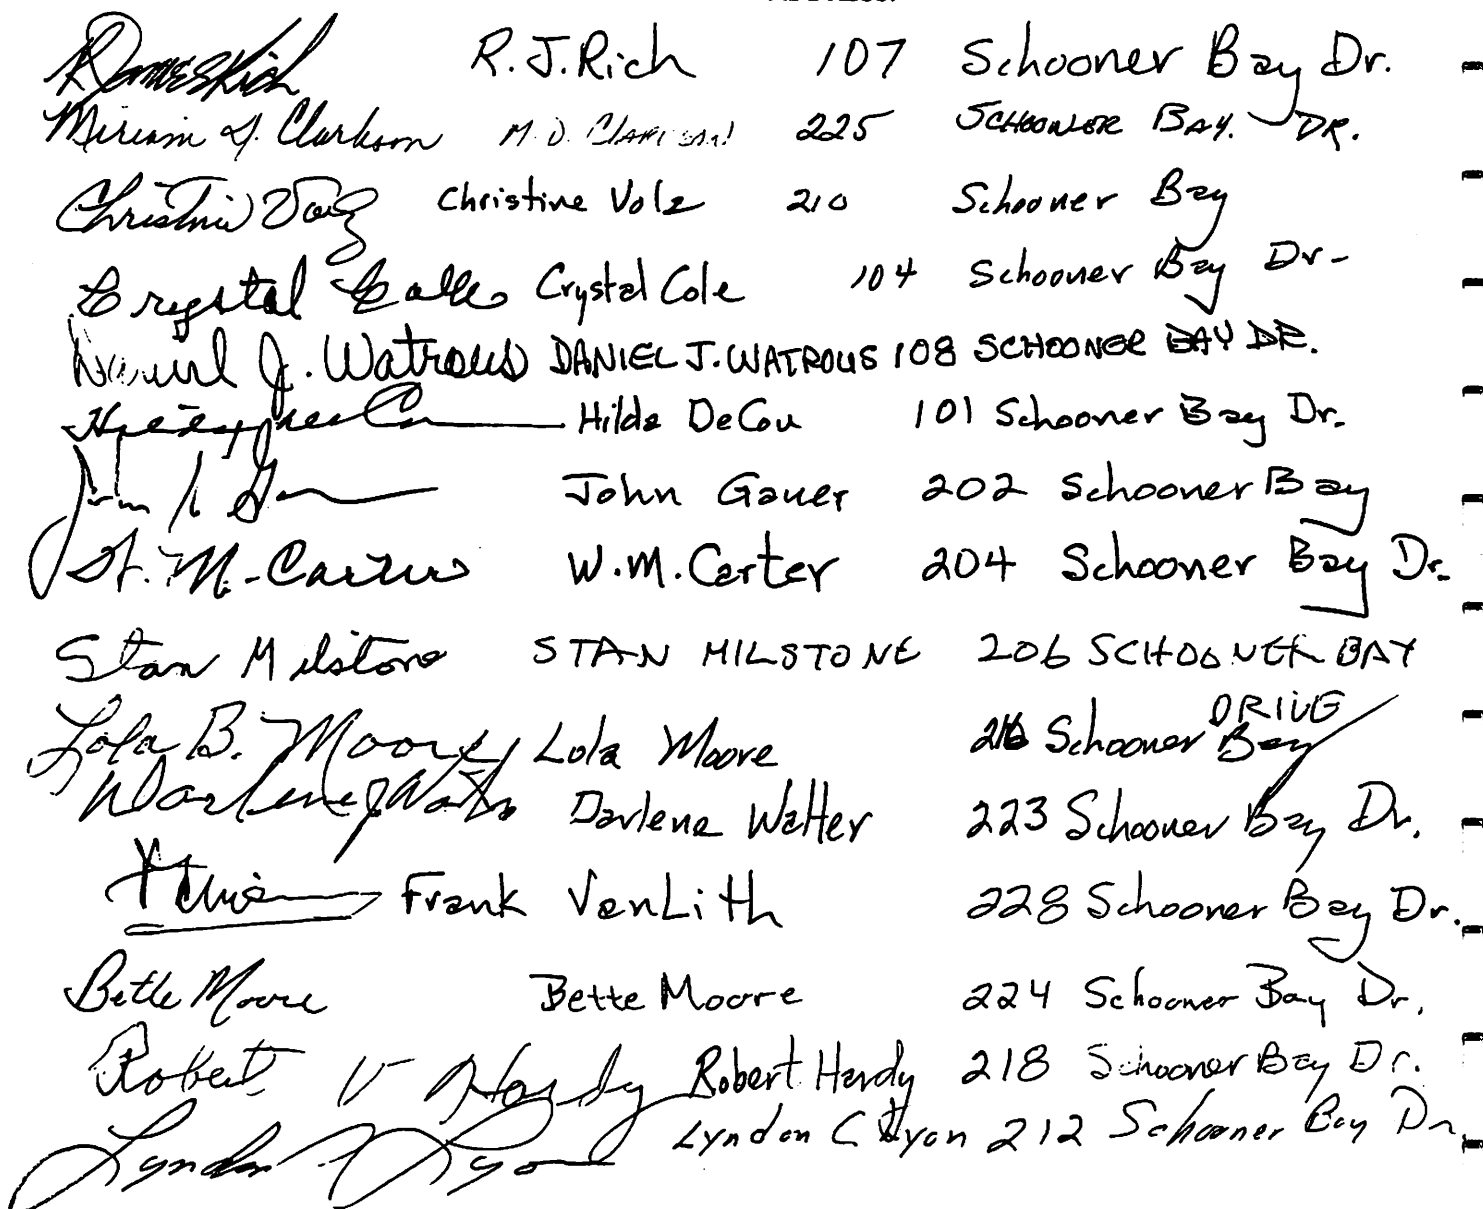 R James Rich R.J.Rich 107 Schooner Bay Dr.
Miriam D. Clarkson M.D. CLARKSON 225 SCHOONER BAY. DR.
Christine Volz Christine Volz 210 Schooner Bay
Crystal Cole Crystal Cole 104 Schooner Bay Dr-
Daniel J. Watrous DANIEL J. WATROUS 108 SCHOONER BAY DR.
Hilda DeCou 101 Schooner Bay Dr.
John Gauer 202 Schooner Bay
W.M.Carter 204 Schooner Bay Dr.
Stan Milstone STAN MILSTONE 206 SCHOONER BAY
DRIVE
Lola B. Moore Lola Moore Schooner Bay
Darlene Walter 223 Schooner Bay Dr.
Frank VanLith 228 Schooner Bay Dr.
Bette Moore Bette Moore 224 Schooner Bay Dr.
Robert V Hardy Robert Hardy 218 Schooner Bay Dr.
Lyndon C Lyon 212 Schooner Bay Dr
Lyndon Lyon